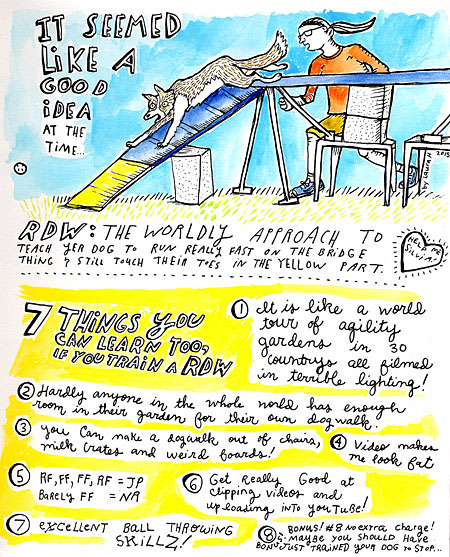 IT SEEMED
LIKE A
GOOD
IDEA
AT THE
TIME...
by Laura H 2015
RDW: THE WORLDLY APPROACH TO
TEACH YER DOG TO RUN REALLY FAST ON THE BRIDGE
THING & STILL TOUCH THEIR TOES IN THE YELLOW PART.
HELP ME
SILVIA!
7 THINGS YOU
CAN LEARN TOO,
IF YOU TRAIN A RDW
① It is like a world
tour of agility
gardens in 30
countrys all filmed
in terrible lighting!
② Hardly anyone in the whole world has enough
room in their garden for their own dogwalk!
③ you can make a dogwalk out of chairs,
milk crates and weird boards!
④ Video makes
me look fat
⑤ RF, FF, FF, RF = JP
BARELY FF = NR
⑥ Get Really Good at
clipping videos and
uploading into YouTube!
⑦ EXCELLENT BALL THROWING
SKILLZ!
⑧ BONUS! #8 NO EXTRA CHARGE!
MAYBE YOU SHOULD HAVE
BONUS JUST TRAINED YOUR DOG TO STOP...